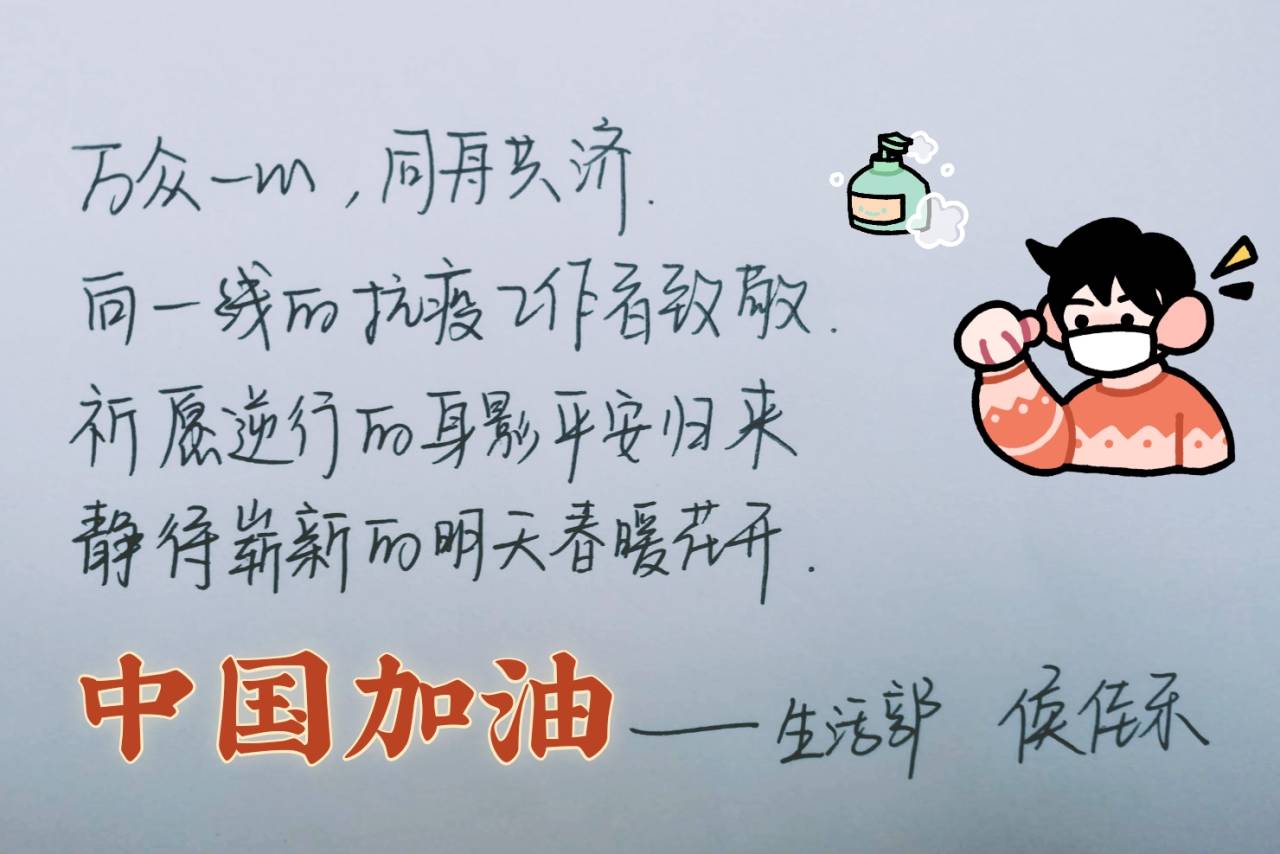 万众一心，同舟共济.
向一线的抗疫工作者致敬.
祈愿逆行的身影平安归来
静待崭新的明天春暖花开.
中国加油——生活部 侯佳乐